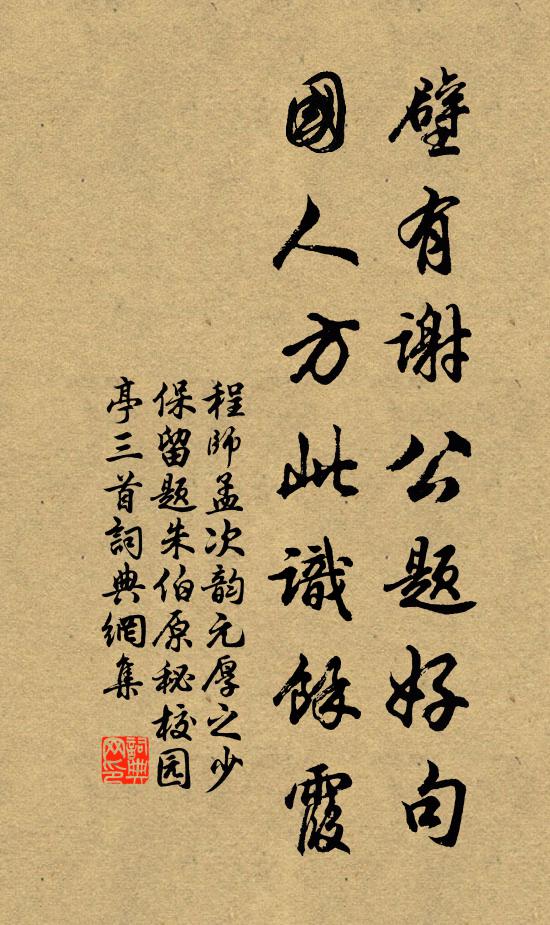 壁有谢公题好句
國人方此識餘霞
程師孟次韵元厚之少
保留题朱伯原秘校园
亭三首詞典網集
詞典
网印